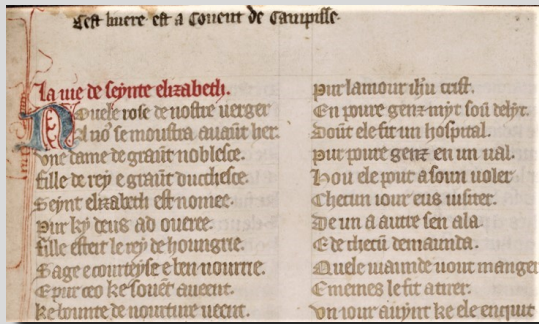 Cest livere est a Covent de Campisse.
La vie de seynte elizabeth.
Novele rose de nostre verger
Ki no' se moustra avaunt her.
Une dame de graunt noblesce.
fille de rey e graunt duchesce.
Seynt elizabeth est nomee.
Pur ky deus ad overee.
fille esteit le rey de houngrie.
Sage e courteyse e ben nourrie.
E pur ceo ke souent avecut.
Ke bounte de nourture vecut.
Pur lamour ihu crist.
En povre genz myt soun delyt.
Dount ele fit un hospital.
Pur povre genz en un val.
Hou ele pout a soun voler
Checun iour eus visiter.
De un a autre sen ala.
E de checun demaunda.
Quele viaunde vout manger
E memes le fit atirer.
Un iour avynt ke ele enquit